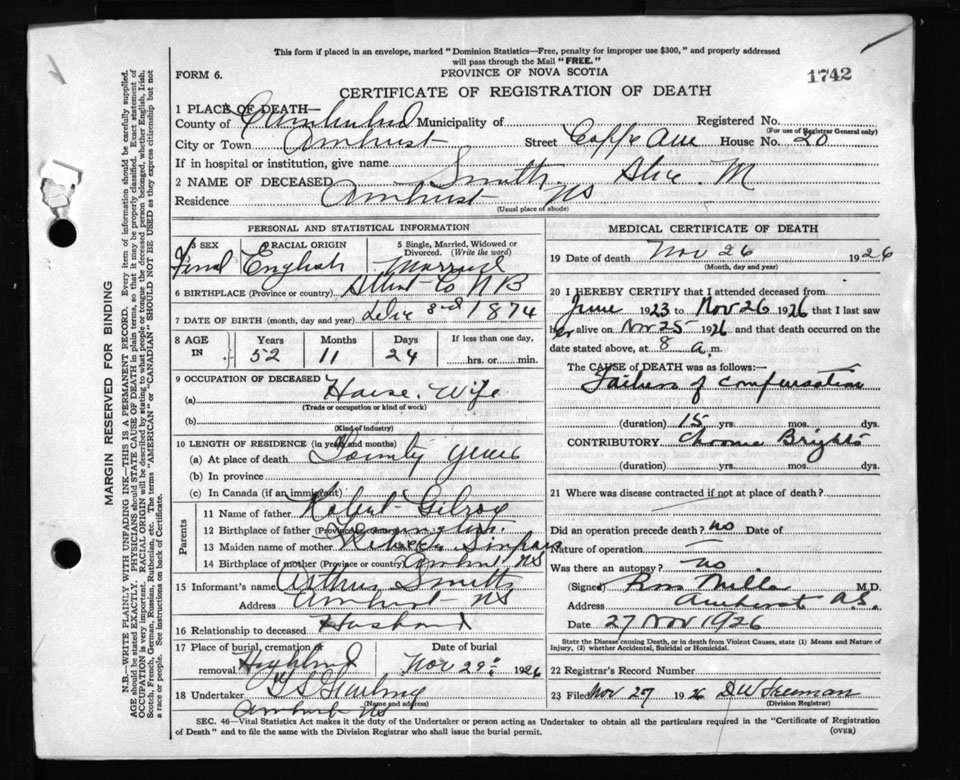 This form if placed in an envelope, marked "Dominion Statistics—Free, penalty for improper use $300," and properly addressed
will pass through the Mail "FREE."
FORM 6.
PROVINCE OF NOVA SCOTIA
1742
CERTIFICATE OF REGISTRATION OF DEATH
1 PLACE OF DEATH—
County of Cumberland Municipality of Registered No.
(For use of Registrar General only)
City or Town Amherst Street Copp Ave House No. 20
If in hospital or institution, give name
2 NAME OF DECEASED Smith, Alice. M
Residence Amherst NS
(Usual place of abode)
PERSONAL AND STATISTICAL INFORMATION
3 SEX 4 RACIAL ORIGIN 5 Single, Married, Widowed or Divorced. (Write the word)
Femal English Married
6 BIRTHPLACE (Province or country) Albert Co NB
7 DATE OF BIRTH (month, day and year) 3rd 1874
8 AGE IN Years Months Days If less than one day,
52 11 24 hrs. or min.
9 OCCUPATION OF DECEASED
(a) House Wife
(Trade or occupation or kind of work)
(b)
(Kind of industry)
10 LENGTH OF RESIDENCE (in years and months)
(a) At place of death years
(b) In province
(c) In Canada (if an immigrant)
Parents
11 Name of father Robert Gilroy
12 Birthplace of father (Province or country)
13 Maiden name of mother Rebecca Simpson
14 Birthplace of mother (Province or country) Amherst NS
15 Informant's name Arthur Smith
Address Amherst NS
16 Relationship to deceased Husband
17 Place of burial, cremation or removal Date of burial
Highland Nov 29th 1926
18 Undertaker
(Name and address)
Amherst NS
MEDICAL CERTIFICATE OF DEATH
19 Date of death Nov 26 1926
(Month, day and year)
20 I HEREBY CERTIFY that I attended deceased from
June 1923 to Nov 26 1926 that I last saw
her alive on Nov 25 1926 and that death occurred on the
date stated above, at 8 a.m.
The CAUSE OF DEATH was as follows:—
Failure of compensation
(duration) 15 yrs. mos. dys.
CONTRIBUTORY Chronic Brights
(duration) yrs. mos. dys.
21 Where was disease contracted if not at place of death?
Did an operation precede death? no Date of
Nature of operation —
Was there an autopsy? no
(Signed) Ross Millar M.D.
Address Amherst N.S.
Date 27 Nov 1926
State the Disease causing Death, or in death from Violent Causes, state (1) Means and Nature of
Injury, (2) whether Accidental, Suicidal or Homicidal.
22 Registrar's Record Number
23 Filed Nov 27 1926 D.W. Freeman
(Division Registrar)
SEC. 46—Vital Statistics Act makes it the duty of the Undertaker or person acting as Undertaker to obtain all the particulars required in the "Certificate of Registration
of Death" and to file the same with the Division Registrar who shall issue the burial permit.
(OVER)
MARGIN RESERVED FOR BINDING
N.B.—WRITE PLAINLY WITH UNFADING INK—THIS IS A PERMANENT RECORD. Every item of information should be carefully supplied.
AGE should be stated EXACTLY. PHYSICIANS should STATE CAUSE OF DEATH in plain terms, so that it may be properly classified. Exact statement of
OCCUPATION is very important. RACIAL ORIGIN will be described by stating to what people or tongue the deceased person belonged, whether English, Irish,
Scotch, French, German, Russian, Ruthenian, etc. The terms "AMERICAN" or "CANADIAN" SHOULD NOT BE USED as they express citizenship but not
a race or people. See instructions on back of Certificate.